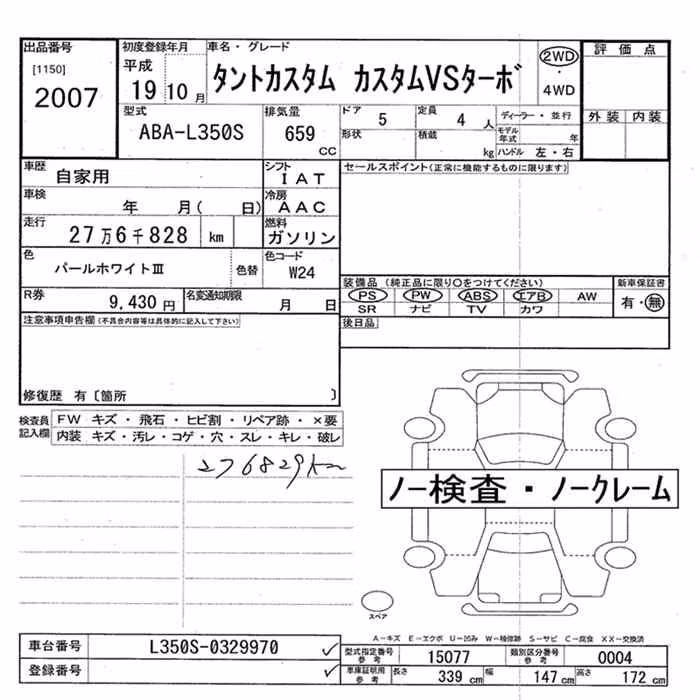 出品番号
[1150]
2007
初度登録年月
平成
19 10 月
車名・グレード
タントカスタム カスタムVSターボ
2WD
・
4WD
評価点
外装 内装
型式
ABA-L350S
排気量
659
CC
ドア
5
定員
4 人
形状
積載
kg
ディーラー・並行
モデル年式 年
ハンドル 左・右
車歴
自家用
シフト
IAT
車検
年 月( 日)
冷房
AAC
走行
27万6千828 km
燃料
ガソリン
色
パールホワイトⅢ
色替
色コード
W24
R券
9,430 円
名変通知期限
月 日
セールスポイント(正常に機能するものに限ります)
装備品 (純正品に限り〇をつけてください)
PS PW ABS エアB AW
SR ナビ TV カワ
新車保証書
有・無
後日品
注意事項申告欄 (不具合内容等は具体的に記入して下さい)
修復歴 有〔箇所 〕
検査員記入欄
FW キズ・飛石・ヒビ割・リペア跡・×要
内装 キズ・汚レ・コゲ・穴・スレ・キレ・破レ
276829km
ノー検査・ノークレーム
スペア
A-キズ E-エクボ U-凹み W-補修跡 S-サビ C-腐食 XX-交換済
車台番号
L350S-0329970
登録番号
型式指定番号
参考
15077
類別区分番号
参考
0004
車庫証明用
参考
長さ
339 cm
幅
147 cm
高さ
172 cm